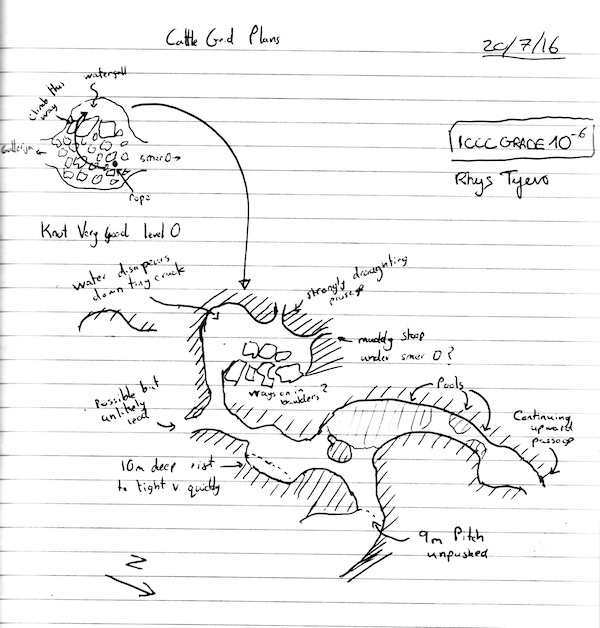 Cattle Grid Plans
20/7/16
waterfall
Climb this
way
rope
ICCC GRADE 10⁻⁶
Rhys Tyers
Knot Very Good Level 0
water disappears
down tiny crack
strongly draughting
passage
muddy slope
under smer 0?
ways on in
boulders?
Pools
Possible but
unlikely
lead
Continuing
upward
passage
10m deep rift
to tight v quickly
9m Pitch
unpushed
N